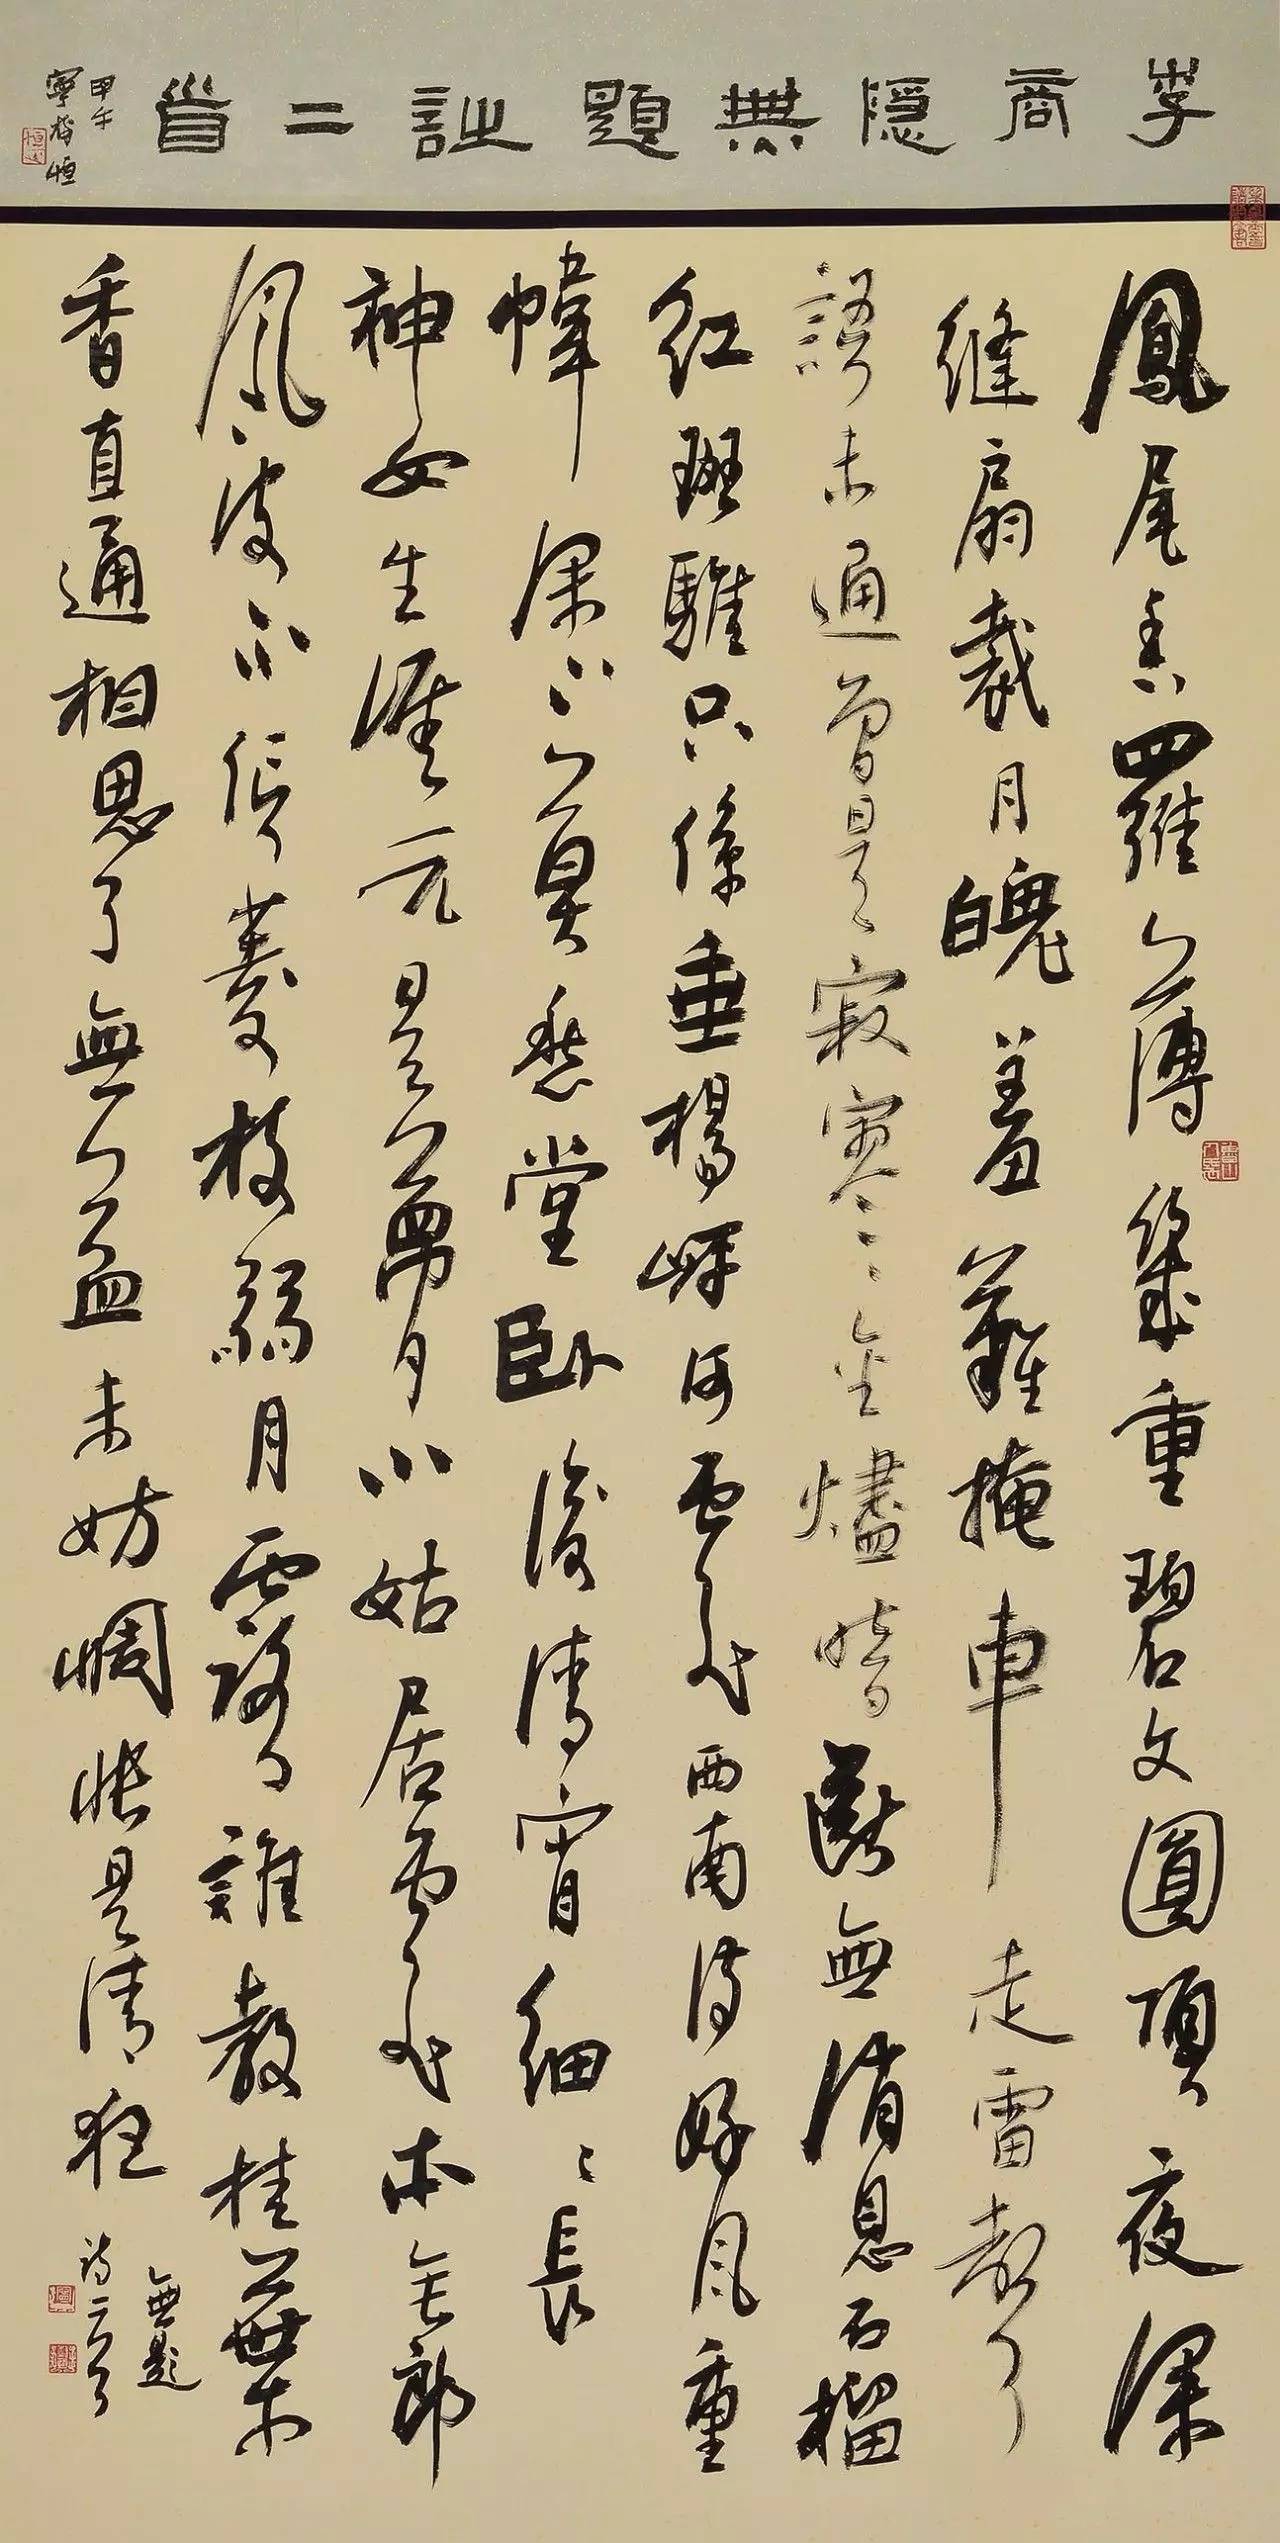 李商隱無題詩二首
甲午
鳳尾香羅薄幾重碧文圓頂夜深
縫扇裁月魄羞難掩車走雷聲
語未通曾是寂寥金燼暗斷無消息石榴
紅斑騅只係垂楊岸何處西南待好風重
幃深下莫愁堂卧後清宵細々長
神女生涯元是夢小姑居處本無郎
風波不信菱枝弱月露誰教桂葉
香直通相思了無益未妨惆悵是清狂
無題
詩二首